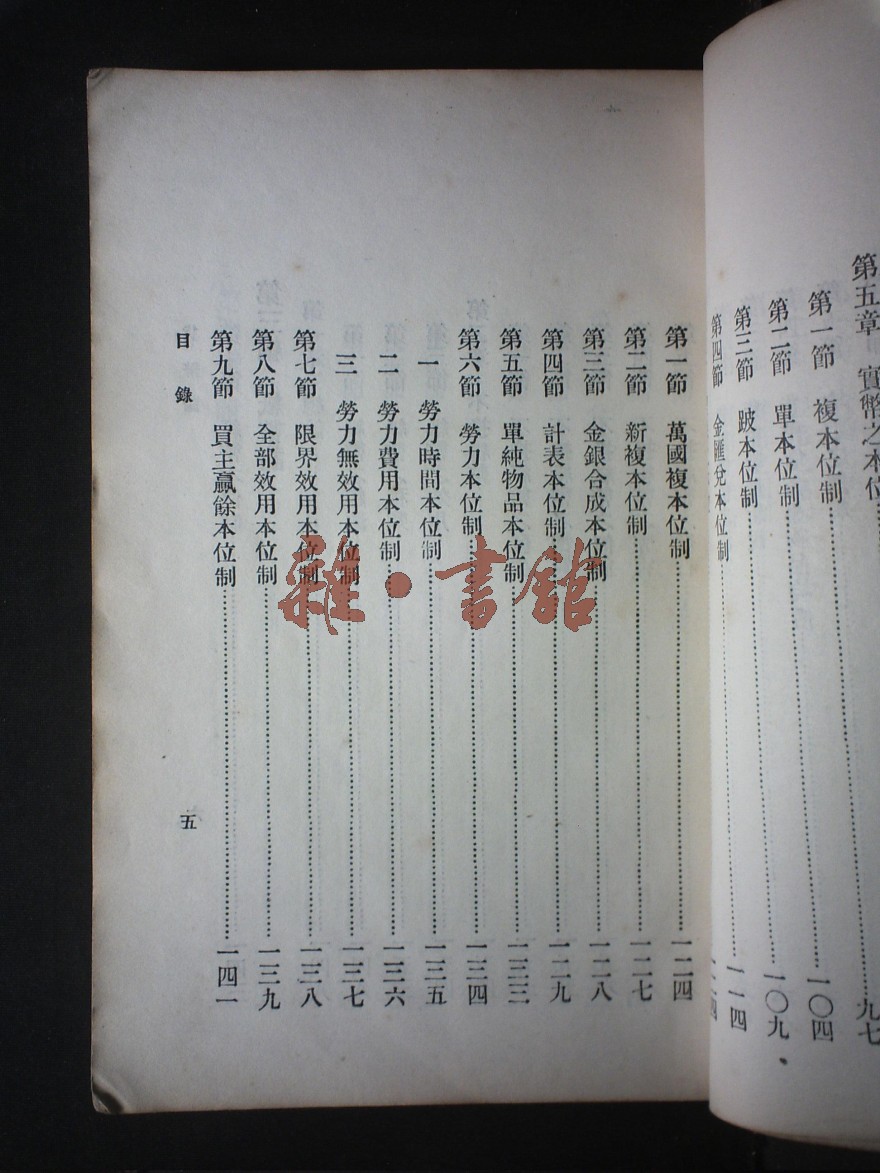 第五章 實幣之本位……九七
第一節 複本位制……一〇四
第二節 單本位制……一〇九
第三節 跛本位制……一一四
第四節 金匯兌本位制……
第一節 萬國複本位制……一二四
第二節 新複本位制……一二七
第三節 金銀合成本位制……一二八
第四節 計表本位制……一二九
第五節 單純物品本位制……一三三
第六節 勞力本位制……一三四
一 勞力時間本位制……一三五
二 勞力費用本位制……一三六
三 勞力無效用本位制……一三七
第七節 限界效用本位制……一三八
第八節 全部效用本位制……一三九
第九節 買主贏餘本位制……一四一
目錄
五
雜·書館